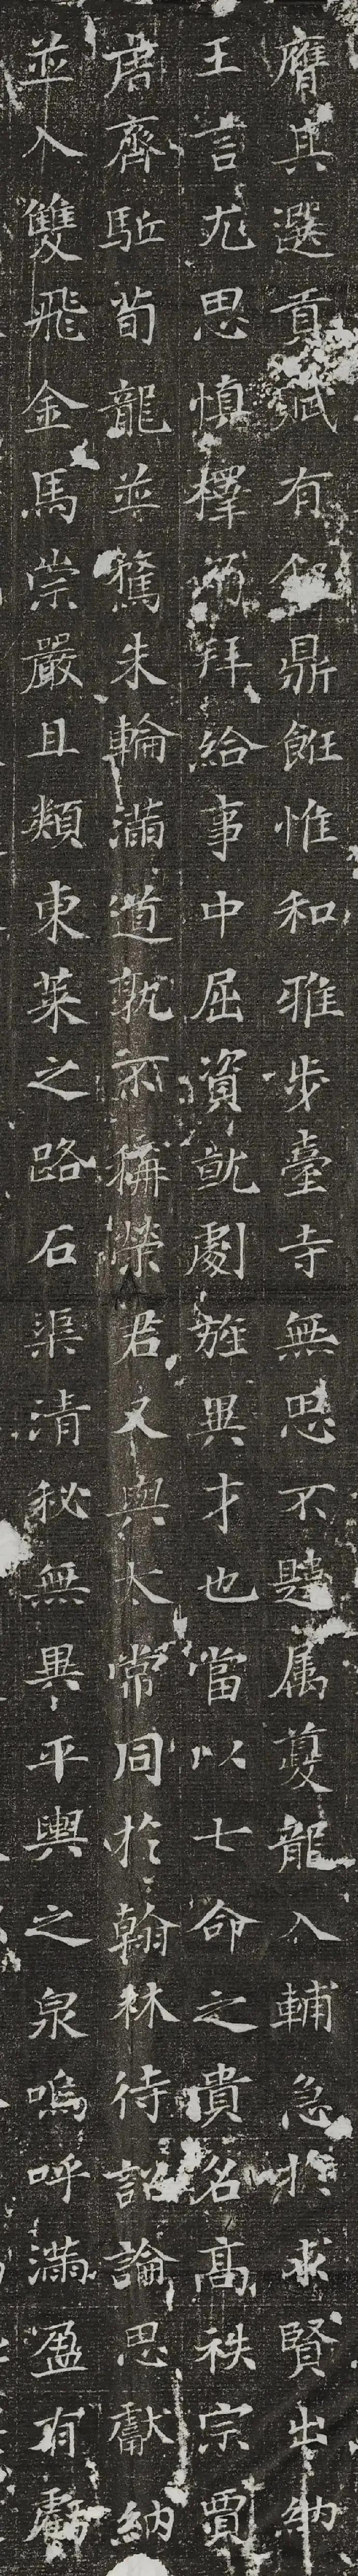 膺其選貢賦有和鼎飪惟和雅步臺寺無思不韙属夔龍入輔急於求賢出納
王言尤思慎擇俯拜給事中屈資就劇旌異才也當以七命之貴名高袟宗賈
唐齊駈荀龍並騖朱輪滿道孰不稱榮君又與太常同於翰林待詔論思獻納
並入雙飛金馬崇嚴且類東萊之路石渠清秘無異平輿之泉嗚呼滿盈有虧